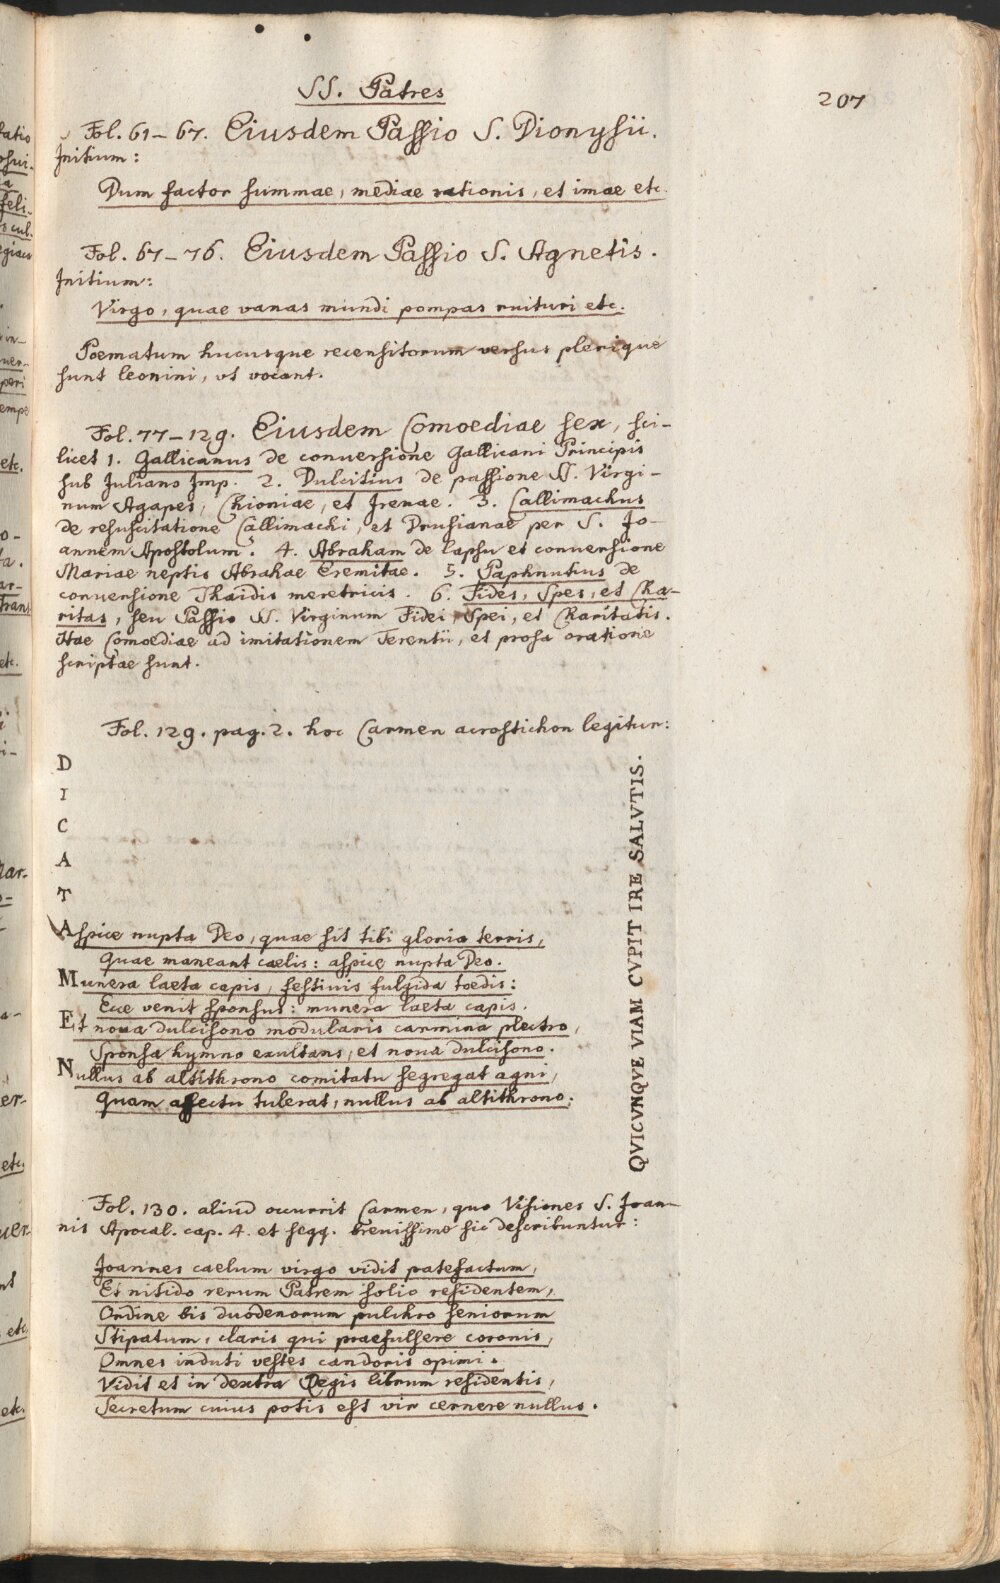 SS. Patres
207
Fol. 61–67. Eiusdem Passio S. Dionysii.
Initium:
Dum factor summae, mediae rationis, et imae etc.
Fol. 67–76. Eiusdem Passio S. Agnetis.
Initium:
Virgo, quae vanas mundi pompas ruituri etc.
Poematum hucusque recensitorum versus plerique
sunt leonini, ut vocant.
Fol. 77–129. Eiusdem Comoediae sex, sci-
licet 1. Gallicanus de conversione Gallicani Principis
sub Juliano Imp. 2. Dulcitius de passione SS. Virgi-
num Agapes, Chioniae, et Irenae. 3. Callimachus
de resuscitatione Callimachi, et Drusianae per S. Jo-
annem Apostolum. 4. Abraham de lapsu et conversione
Mariae neptis Abrahae Eremitae. 5. Paphnutius de
conversione Thaidis meretricis. 6. Fides, Spes, et Cha-
ritas, seu Passio SS. Virginum Fidei, Spei, et Charitatis.
Hae Comoediae ad imitationem Terentii, et prosa oratione
scriptae sunt.
Fol. 129. pag. 2. hoc Carmen acrostichon legitur:
D
I
C
A
T
Aspice nupta Deo, quae sit tibi gloria terris,
Quae maneant caelis: aspice nupta Deo.
Munera laeta capis, festivis fulgida toedis:
Ecce venit sponsus: munera laeta capis.
Et nova dulcisono modularis carmina plectro,
Sponsa hymno exultans, et nova dulcisono.
Nullus ab altithrono comitatu segregat agni,
Quam affectu tulerat, nullus ab altithrono.
QVICVNQVE VIAM CVPIT IRE SALVTIS.
Fol. 130. aliud occurrit Carmen, quo Visiones S. Joan-
nis Apocal. cap. 4. et seqq. brevissime sic describuntur:
Joannes caelum virgo vidit patefactum,
Et nitido rerum Patrem solio residentem,
Ordine bis duodenorum pulchro seniorum
Stipatum, claris qui praefulsere coronis,
Omnes induti vestes candoris opimi.
Vidit et in dextra Regis librum residentis,
Secretum cuius potis est vir cernere nullus.